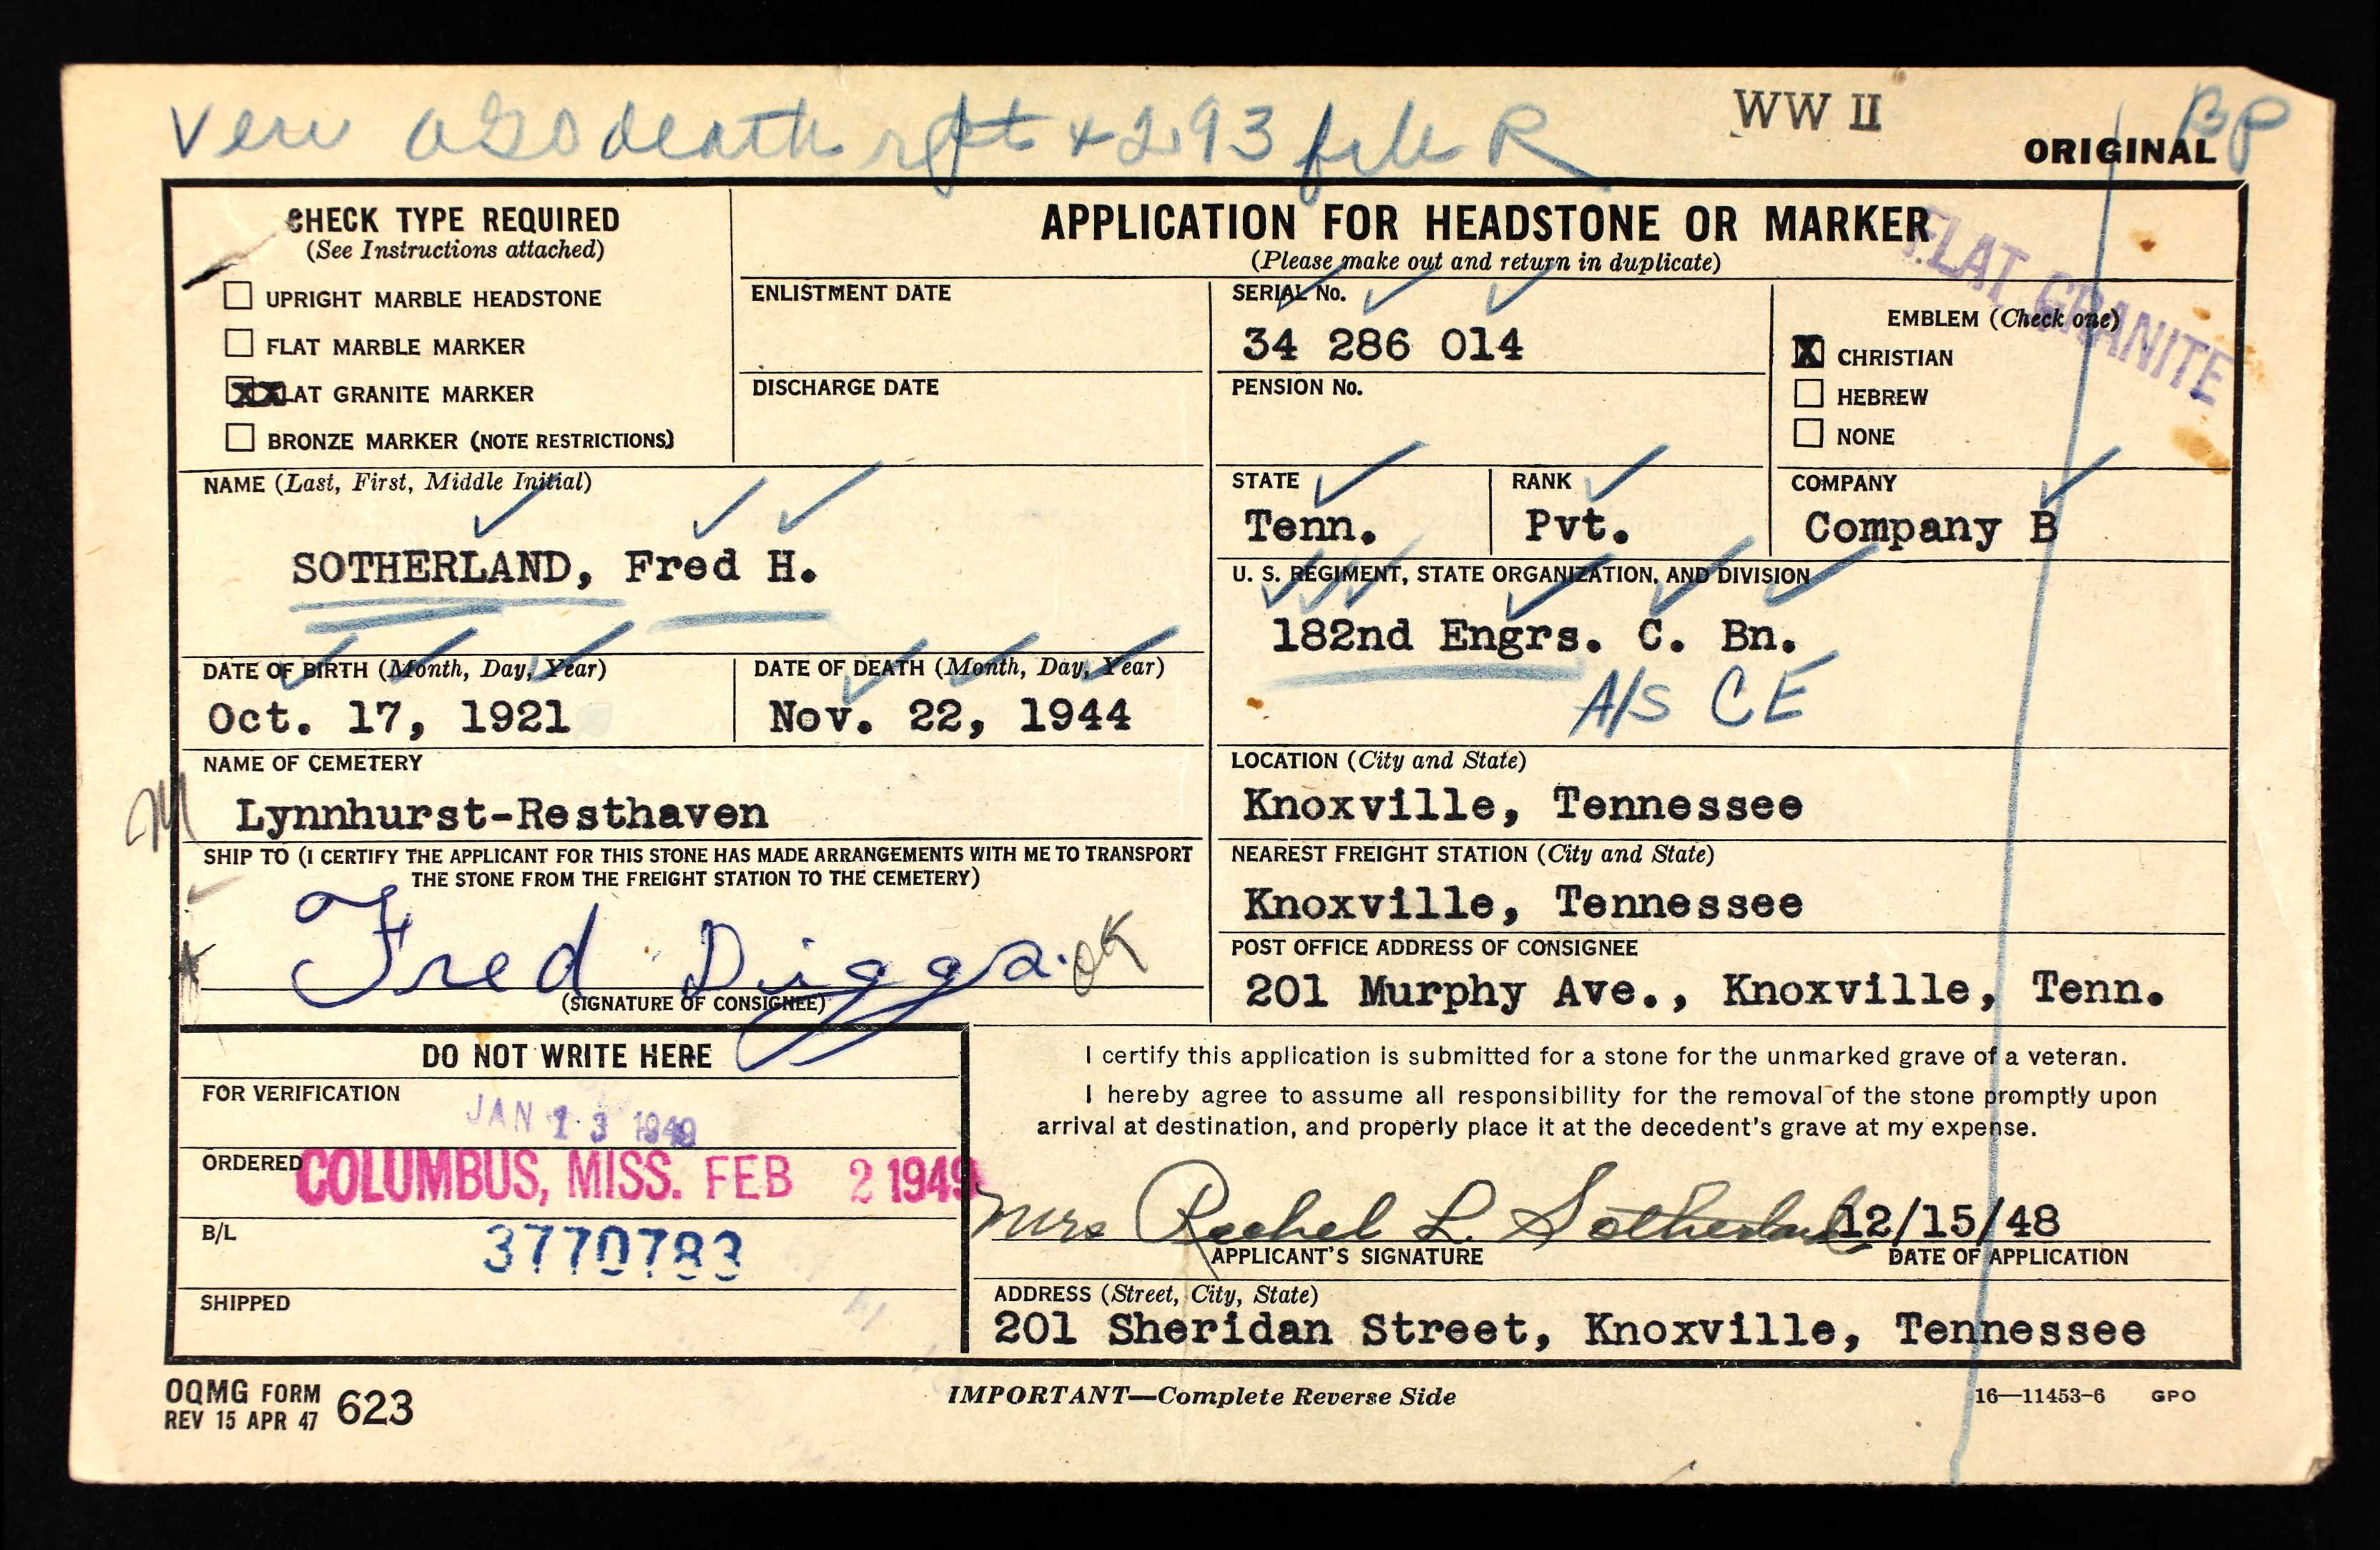 Veri AGO death rpt + 293 file R
WW II
BP
ORIGINAL
CHECK TYPE REQUIRED
(See Instructions attached)
☐ UPRIGHT MARBLE HEADSTONE
☐ FLAT MARBLE MARKER
XXLAT GRANITE MARKER
☐ BRONZE MARKER (NOTE RESTRICTIONS)
APPLICATION FOR HEADSTONE OR MARKER
(Please make out and return in duplicate)
FLAT GRANITE
ENLISTMENT DATE
DISCHARGE DATE
SERIAL No.
34 286 014
PENSION No.
EMBLEM (Check one)
X CHRISTIAN
☐ HEBREW
☐ NONE
NAME (Last, First, Middle Initial)
SOTHERLAND, Fred H.
STATE
Tenn.
RANK
Pvt.
COMPANY
Company B
U. S. REGIMENT, STATE ORGANIZATION, AND DIVISION
182nd Engrs. C. Bn.
A/S CE
DATE OF BIRTH (Month, Day, Year)
Oct. 17, 1921
DATE OF DEATH (Month, Day, Year)
Nov. 22, 1944
NAME OF CEMETERY
M Lynnhurst-Resthaven
LOCATION (City and State)
Knoxville, Tennessee
SHIP TO (I CERTIFY THE APPLICANT FOR THIS STONE HAS MADE ARRANGEMENTS WITH ME TO TRANSPORT
THE STONE FROM THE FREIGHT STATION TO THE CEMETERY)
Fred Digga. OK
(SIGNATURE OF CONSIGNEE)
NEAREST FREIGHT STATION (City and State)
Knoxville, Tennessee
POST OFFICE ADDRESS OF CONSIGNEE
201 Murphy Ave., Knoxville, Tenn.
DO NOT WRITE HERE
FOR VERIFICATION
JAN 13 1949
ORDERED COLUMBUS, MISS. FEB 2 1949
B/L
3770783
SHIPPED
I certify this application is submitted for a stone for the unmarked grave of a veteran.
I hereby agree to assume all responsibility for the removal of the stone promptly upon
arrival at destination, and properly place it at the decedent's grave at my expense.
Mrs Rachel L. Sotherland 12/15/48
APPLICANT'S SIGNATURE
DATE OF APPLICATION
ADDRESS (Street, City, State)
201 Sheridan Street, Knoxville, Tennessee
OQMG FORM 623
REV 15 APR 47
IMPORTANT—Complete Reverse Side
16—11453-6 GPO